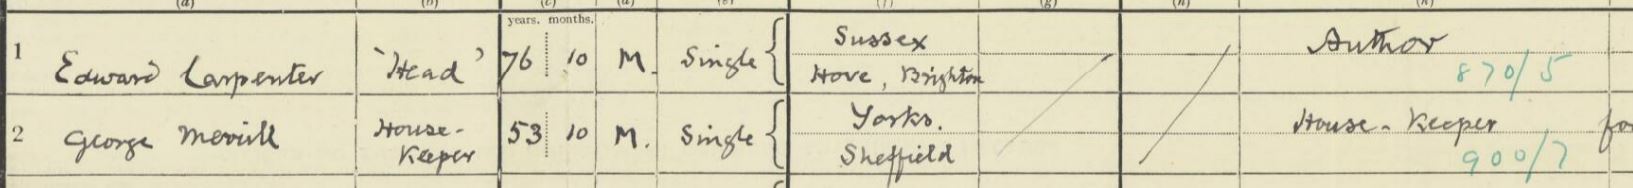 (a) (b) (c) (d) (e) (f) (g) (h) (k)
years. months.
1 Edward Carpenter 'Head' 76 10 M. Single { Sussex Hove, Brighton Author 870/5
2 George Merrill House-Keeper 53 10 M. Single { Yorks. Sheffield House-Keeper 900/7